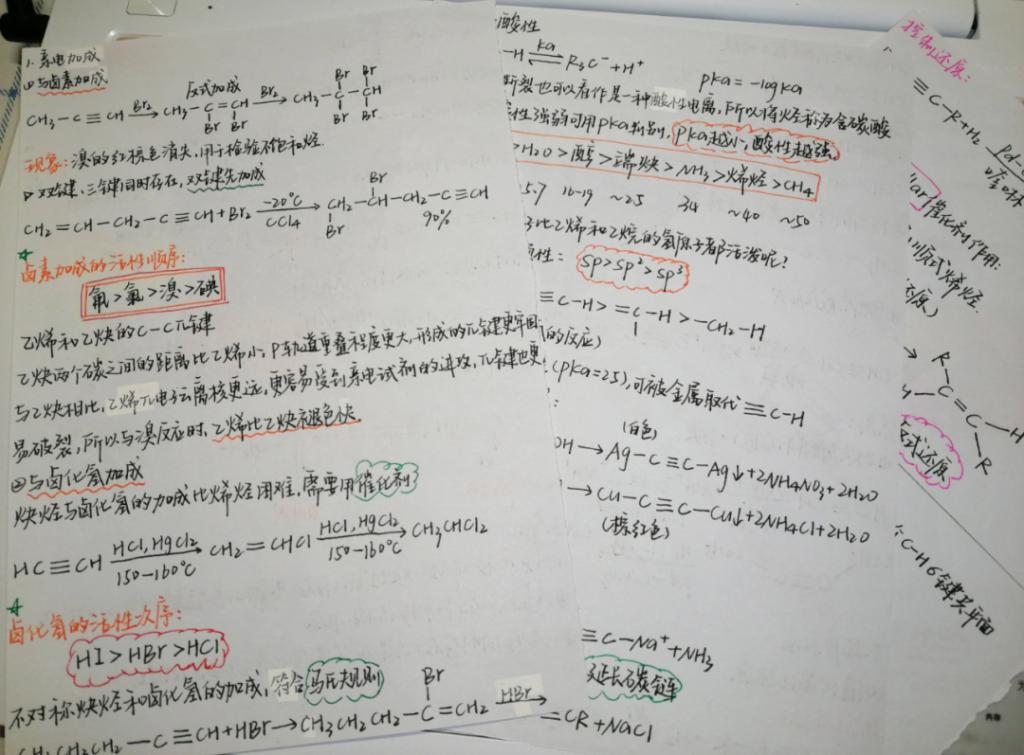 1. 亲电加成
① 与卤素加成
反式加成
CH₃-C≡CH →(Br₂) CH₃-C=CH →(Br₂) CH₃-C-CH
Br Br
Br Br
Br Br
现象：溴的红棕色消失，用于检验不饱和烃.
双键、三键同时存在，双键先加成
CH₂=CH-CH₂-C≡CH+Br₂ →(-20℃ CCl₄) CH₂-CH-CH₂-C≡CH
Br
Br
90%
卤素加成的活性顺序：
氟>氯>溴>碘
乙烯和乙炔的C-Cπ键
乙炔两个碳之间的距离比乙烯小，P轨道重叠程度更大，形成的π键更牢固
与乙炔相比，乙烯π电子云离核更远，更容易受到亲电试剂的进攻，π键也更
易破裂，所以与溴反应时，乙烯比乙炔褪色快.
②与卤化氢加成
炔烃与卤化氢的加成比烯烃困难，需要用催化剂
HC≡CH →(HCl, HgCl₂ 150-160℃) CH₂=CHCl →(HCl, HgCl₂ 150-160℃) CH₃CHCl₂
卤化氢的活性次序：
HI>HBr>HCl
不对称炔烃和卤化氢的加成，符合马氏规则
Br
CH₂CH₂-C≡CH+HBr→CH₃CH₂CH₂-C=CH₂ →(HBr)
酸性
-H ⇌(Ka) R₃C⁻+H⁺
pKa=-logKa
断裂也可以看作是一种酸性电离，所以将烃称为含碳酸
性强弱可用pKa判别，pKa越小，酸性越强.
>H₂O>醇>端炔>NH₃>烯烃>CH₄
5.7 16-19 ~25 34 ~40 ~50
比乙烯和乙烷的氢原子都活泼呢？
性：sp>sp²>sp³
≡C-H>=C-H>-CH₂-H
的反应）
(pKa=25)，可被金属取代≡C-H
：
(白色)
OH→Ag-C≡C-Ag↓+2NH₄NO₃+2H₂O
→Cu-C≡C-Cu↓+2NH₄Cl+2H₂O
(棕红色)
≡C-Na⁺+NH₃
延长碳链
≡CR+NaCl
控制还原：
≡C-R+H₂ Pd-
喹啉
lar催化剂作用：
顺式烯烃
还原）
R
C=C
H
R
反式还原
∵C-Hσ键共平面
内容